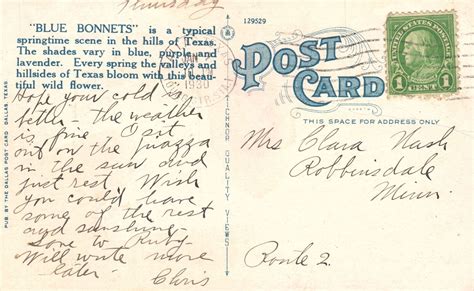 Thursday
"BLUE BONNETS" is a typical
springtime scene in the hills of Texas.
The shades vary in blue, purple and
lavender. Every spring the valleys and
hillsides of Texas bloom with this beau-
tiful wild flower.
Hope your cold is
better - the weather
is fine I sit
out on the piazza
in the sun and
just rest. Wish
you could have
some of the rest
and sunshine
to Ruby
Will write more
later. Chris
PUB BY THE DALLAS POST CARD CO. DALLAS, TEXAS
TICHNOR QUALITY VIEWS
129529
POST
CARD
THIS SPACE FOR ADDRESS ONLY
1930
UNITED STATES POSTAGE
1 CENT 1
Mrs Clara Nash
Robbinsdale
Minn.
Route 2